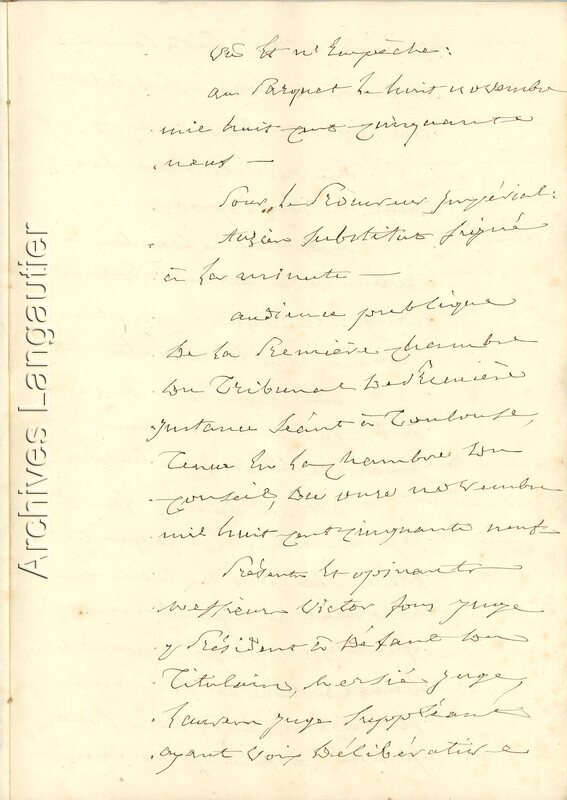 Vû et n'Empêche :
au Parquet le huit novembre
mil huit cent cinquante
neuf —
Pour le Procureur Impérial :
substitut signé
à la minute —
audience publique
De la Première chambre
Du Tribunal De Première
Instance séant à Toulouse,
Tenue En La chambre Du
conseil, Du onze novembre
mil huit cent cinquante neuf
Présents Et opinants
Messieurs Victor fons Juge
Président à Défaut Du
Titulaire, Juge,
Juge suppléant
ayant voix Délibérative
Archives Langautier